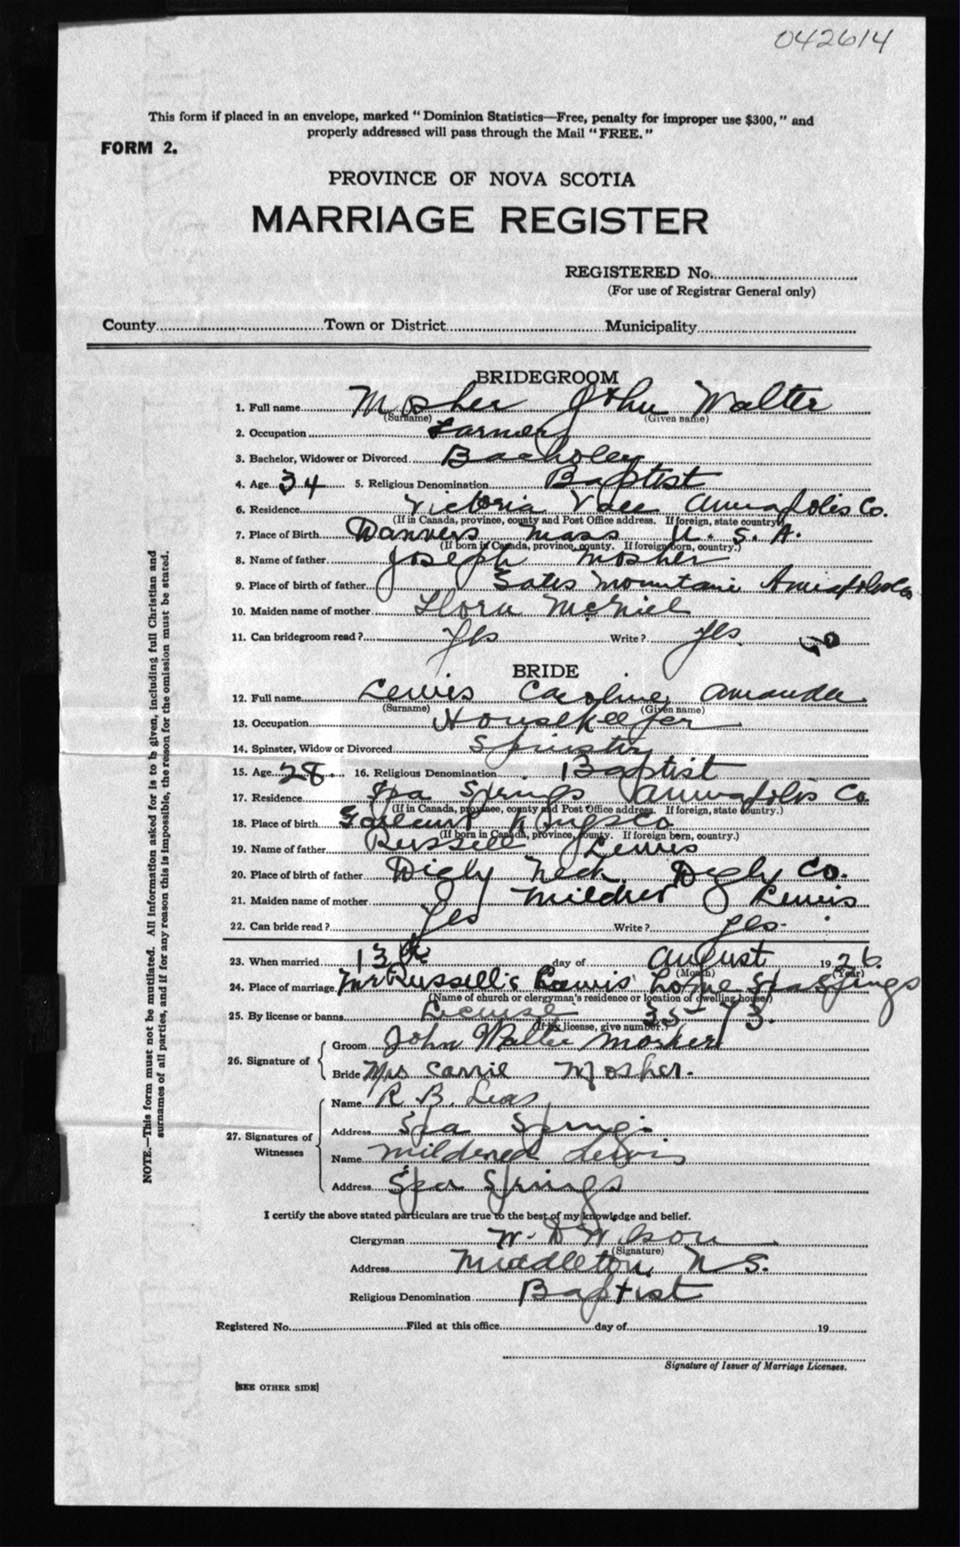 042614
This form if placed in an envelope, marked "Dominion Statistics—Free, penalty for improper use $300," and
properly addressed will pass through the Mail "FREE."
FORM 2.
PROVINCE OF NOVA SCOTIA
MARRIAGE REGISTER
REGISTERED No.
(For use of Registrar General only)
County Town or District Municipality
BRIDEGROOM
1. Full name Mosher John Walter
(Surname) (Given name)
2. Occupation Farmer
3. Bachelor, Widower or Divorced Bacholer
4. Age 34 5. Religious Denomination Baptist
6. Residence Victoria Vale Annapolis Co.
(If in Canada, province, county and Post Office address. If foreign, state country)
7. Place of Birth Danvers Mass U. S. A.
(If born in Canada, province, county. If foreign born, country.)
8. Name of father Joseph Mosher
9. Place of birth of father Gates Mountain Annapolis Co
10. Maiden name of mother Flora McNiel
11. Can bridegroom read? Yes Write? Yes
BRIDE
12. Full name Lewis Caroline Amanda
(Surname) (Given name)
13. Occupation Housekeeper
14. Spinster, Widow or Divorced Spinster
15. Age 28. 16. Religious Denomination Baptist
17. Residence Spa Springs Annapolis Co
(If in Canada, province, county and Post Office address. If foreign, state country.)
18. Place of birth Kings Co
(If born in Canada, province, county. If foreign born, country.)
19. Name of father Russell Lewis
20. Place of birth of father Digby Neck Digby Co.
21. Maiden name of mother Mildred Lewis
22. Can bride read? Yes Write? Yes
23. When married 13th day of August 1926.
(Month) (Year)
24. Place of marriage Mr Russell's Lewis Home Spa Springs
(Name of church or clergyman's residence or location of dwelling house)
25. By license or banns License 35-73.
(If by license, give number.)
26. Signature of
Groom John Walter Mosher
Bride Mrs Carrie Mosher.
27. Signatures of Witnesses
Name R B.
Address Spa Springs
Name Mildred Lewis
Address Spa Springs
I certify the above stated particulars are true to the best of my knowledge and belief.
Clergyman W. D Wilson
(Signature)
Address Middleton, N S.
Religious Denomination Baptist
Registered No. Filed at this office day of 19
Signature of Issuer of Marriage Licenses.
[SEE OTHER SIDE]
NOTE.—This form must not be mutilated. All information asked for is to be given, including full Christian and
surnames of all parties, and if for any reason this is impossible, the reason for the omission must be stated.